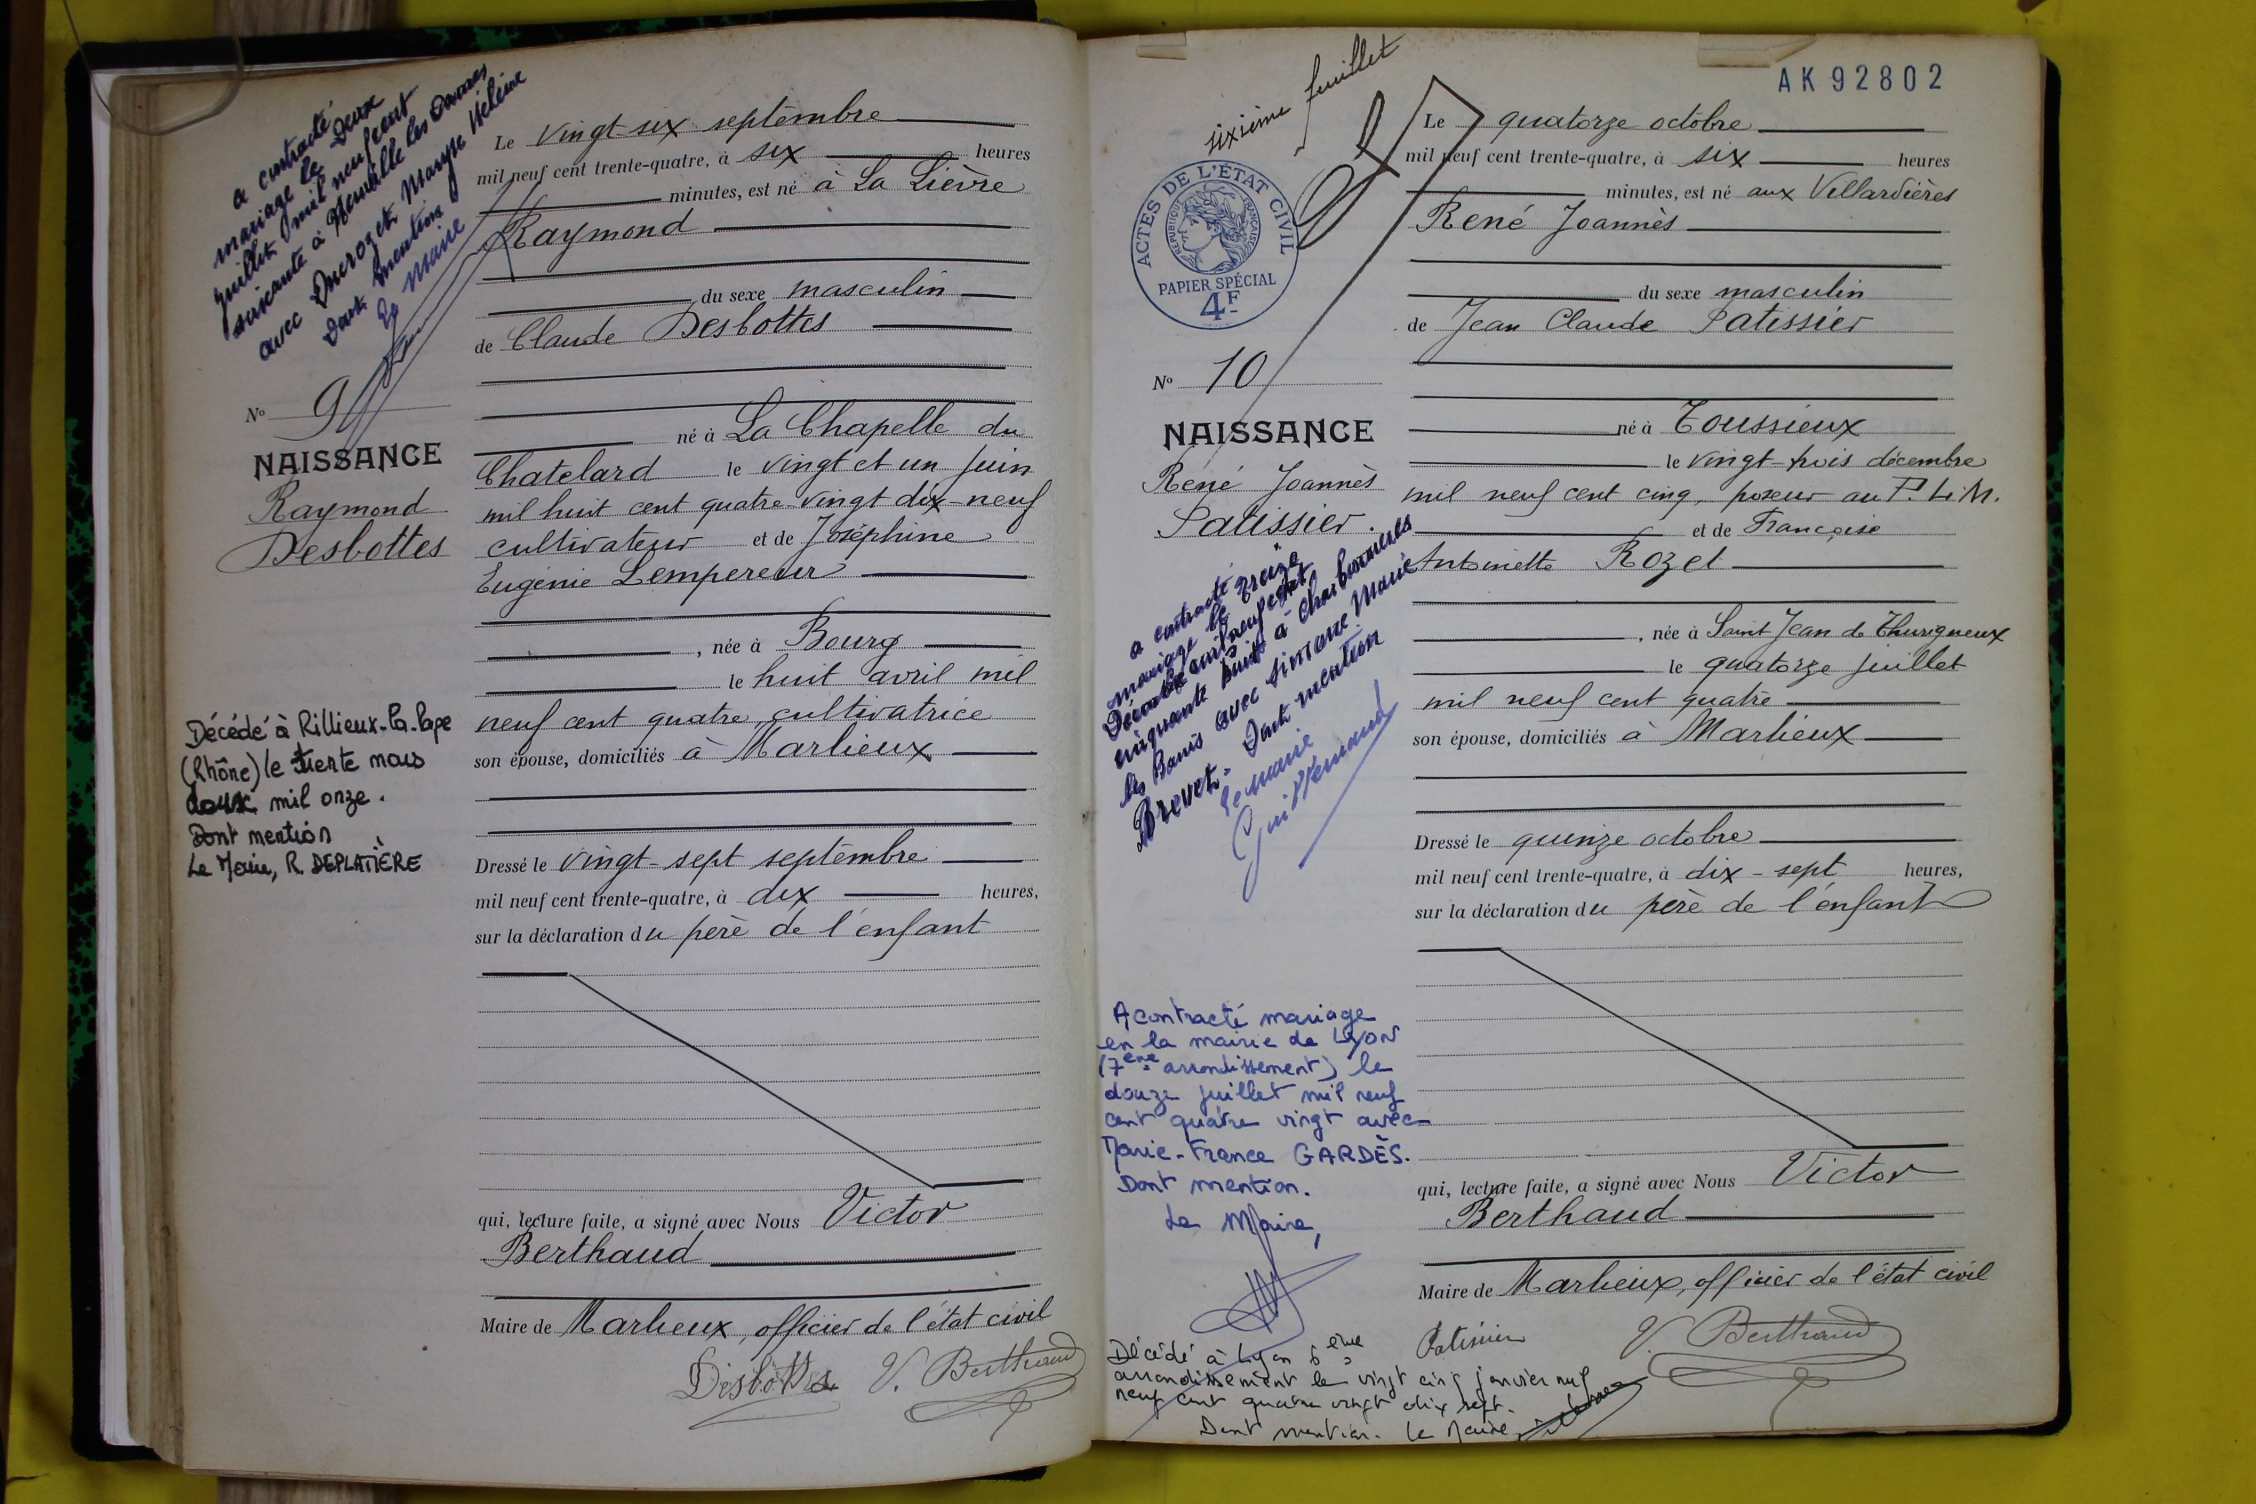 a contracté
mariage le Deux
juillet mil neuf cent
soixante à Neuville les Dames
avec Durozet Maryse Hélène
Dont mention
Le Maire
Nº 9
NAISSANCE
Raymond
Desbottes
Décédé à Rillieux-la-Pape
(Rhône) le trente mars
deux mil onze.
Dont mention
Le Maire, R. DEPLATIÈRE
Le vingt-six septembre
mil neuf cent trente-quatre, à six heures
minutes, est né à La Lièvre
Raymond
du sexe masculin
de Claude Desbottes
né à La Chapelle du
Chatelard le vingt et un juin
mil huit cent quatre-vingt dix-neuf
cultivateur et de Joséphine
Eugénie Lempereur
, née à Bourg
le huit avril mil
neuf cent quatre, cultivatrice
son épouse, domiciliés à Marlieux
Dressé le vingt-sept septembre
mil neuf cent trente-quatre, à dix heures,
sur la déclaration du père de l'enfant
qui, lecture faite, a signé avec Nous Victor
Berthaud
Maire de Marlieux, officier de l'état civil
Desbottes V. Berthaud
sixième feuillet
AK92802
ACTES DE L'ÉTAT CIVIL
RÉPUBLIQUE FRANÇAISE
PAPIER SPÉCIAL
4F
Nº 10
NAISSANCE
René Joannès
Patissier.
a contracté
mariage le treize
Décembre mil neuf cent
cinquante huit à Charbonnières
les Bains avec Simone Marie
Brevet. Dont mention
Le maire
Guillemaud
A contracté mariage
en la mairie de LYON
(7ème arrondissement) le
douze juillet mil neuf
cent quatre vingt avec
Marie-France GARDÈS.
Dont mention.
Le Maire,
Décédé à Lyon 6ème
arrondissement le vingt cinq janvier mil
neuf cent quatre vingt dix sept.
Dont mention. Le Maire
Le quatorze octobre
mil neuf cent trente-quatre, à six heures
minutes, est né aux Villardières
René Joannès
du sexe masculin
de Jean Claude Patissier
né à Toussieux
le vingt-trois décembre
mil neuf cent cinq, poseur au P.L.M.
et de Françoise
Antoinette Rozet
, née à Saint Jean de Thurigneux
le quatorze juillet
mil neuf cent quatre
son épouse, domiciliés à Marlieux
Dressé le quinze octobre
mil neuf cent trente-quatre, à dix-sept heures,
sur la déclaration du père de l'enfant
qui, lecture faite, a signé avec Nous Victor
Berthaud
Maire de Marlieux, officier de l'état civil
Patissier V. Berthaud